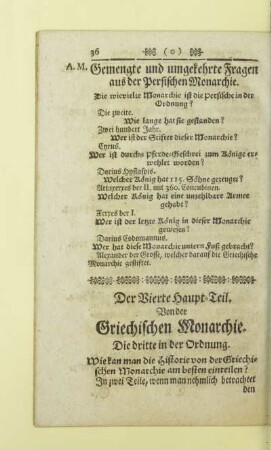 36 (0)
A. M. Gemengte und umgekehrte Fragen
aus der Persischen Monarchie.
Die wievielte Monarchie ist die Persische in der
Ordnung?
Die zweite.
Wie lange hat sie gestanden?
Zwei hundert Jahr.
Wer ist der Stifter dieser Monarchie?
Cyrus.
Wer ist durchs Pferde-Geschrei zum Könige er-
wehlet worden?
Darius Hystaspis.
Welcher König hat 115. Söhne gezeuget?
Artaxerxes der II. mit 360. Concubinen.
Welcher König hat eine unzehlbare Armee
gehabt?
Xerxes der I.
Wer ist der letzte König in dieser Monarchie
gewesen?
Darius Codomannus.
Wer hat diese Monarchie untern Fuß gebracht?
Alexander der Grosse, welcher darauf die Griechische
Monarchie gestiftet.
Der Vierte Haupt-Teil.
Von der
Griechischen Monarchie.
Die dritte in der Ordnung.
Wie kan man die Historie von der Griechi-
schen Monarchie am besten einteilen?
In zwei Teile, wenn man nehmlich betrachtet
den